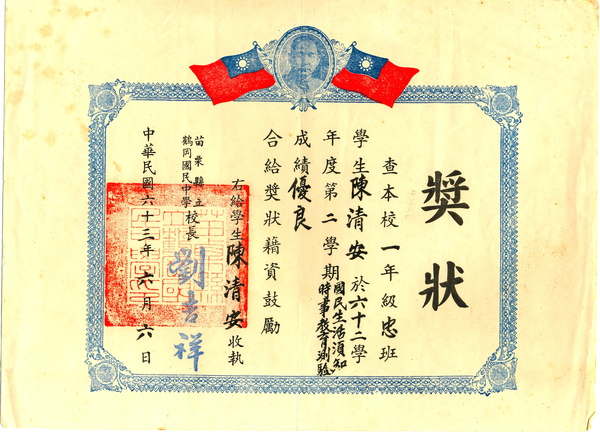 獎狀
查本校一年級忠班
學生陳清安於六十二學
年度第二學期國民生活須知
時事教育測驗
成績優良
合給獎狀藉資鼓勵
右給學生陳清安收執
苗栗縣立
鶴岡國民中學校長劉吉祥
中華民國六十三年六月六日